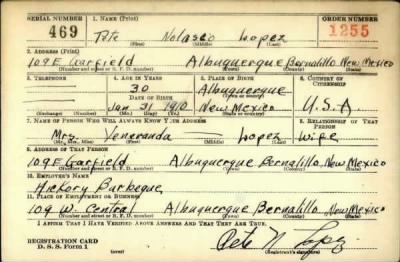 SERIAL NUMBER 1. NAME (Print) ORDER NUMBER
469 Pete Nolasco Lopez 1255
(First) (Middle) (Last)
2. ADDRESS (Print)
109 E Garfield Albuquerque Bernalillo New Mexico
(Number and street or R. F. D. number) (Town) (County) (State)
3. TELEPHONE 4. AGE IN YEARS 5. PLACE OF BIRTH 6. COUNTRY OF CITIZENSHIP
30 Albuquerque
DATE OF BIRTH (Town or county)
Jan 31 1910 New Mexico U.S.A
(Exchange) (Number) (Mo.) (Day) (Yr.) (State or country)
7. NAME OF PERSON WHO WILL ALWAYS KNOW YOUR ADDRESS 8. RELATIONSHIP OF THAT PERSON
Mrs. Veneranda — Lopez Wife
(Mr., Mrs., Miss) (First) (Middle) (Last)
9. ADDRESS OF THAT PERSON
109 E Garfield Albuquerque Bernalillo, New Mexico
(Number and street or R. F. D. number) (Town) (County) (State)
10. EMPLOYER'S NAME
Hickory Barbeque
11. PLACE OF EMPLOYMENT OR BUSINESS
109 W. Central Albuquerque Bernalillo New Mexico
(Number and street or R. F. D. number) (Town) (County) (State)
I AFFIRM THAT I HAVE VERIFIED ABOVE ANSWERS AND THAT THEY ARE TRUE.
REGISTRATION CARD
D. S. S. Form 1 (over) Pete N. Lopez
(Registrant's signature)